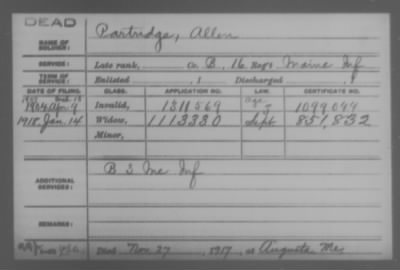 DEAD
NAME OF SOLDIER: Partridge, Allen
SERVICE: Late rank, Co. B, 16 Reg't Maine Inf
TERM OF SERVICE: Enlisted , 1 Discharged , 1
DATE OF FILING. CLASS. APPLICATION NO. LAW. CERTIFICATE NO.
1904 Apr. 9 Invalid, 1311569 Age 1099044
1918 Jan. 14 Widow, 1113330 Sept 851,832
Minor,
ADDITIONAL SERVICES: B 3 Me Inf
REMARKS:
Died Nov. 27, 1917, at Augusta Me,